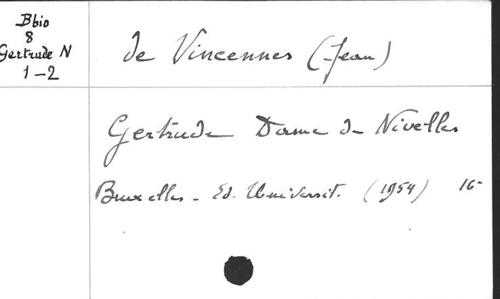 Bbio
8
Gertrude N
1-2
de Vincennes (Jean)
Gertrude Dame de Nivelles
Bruxelles - Ed. Universit. (1954) 16-